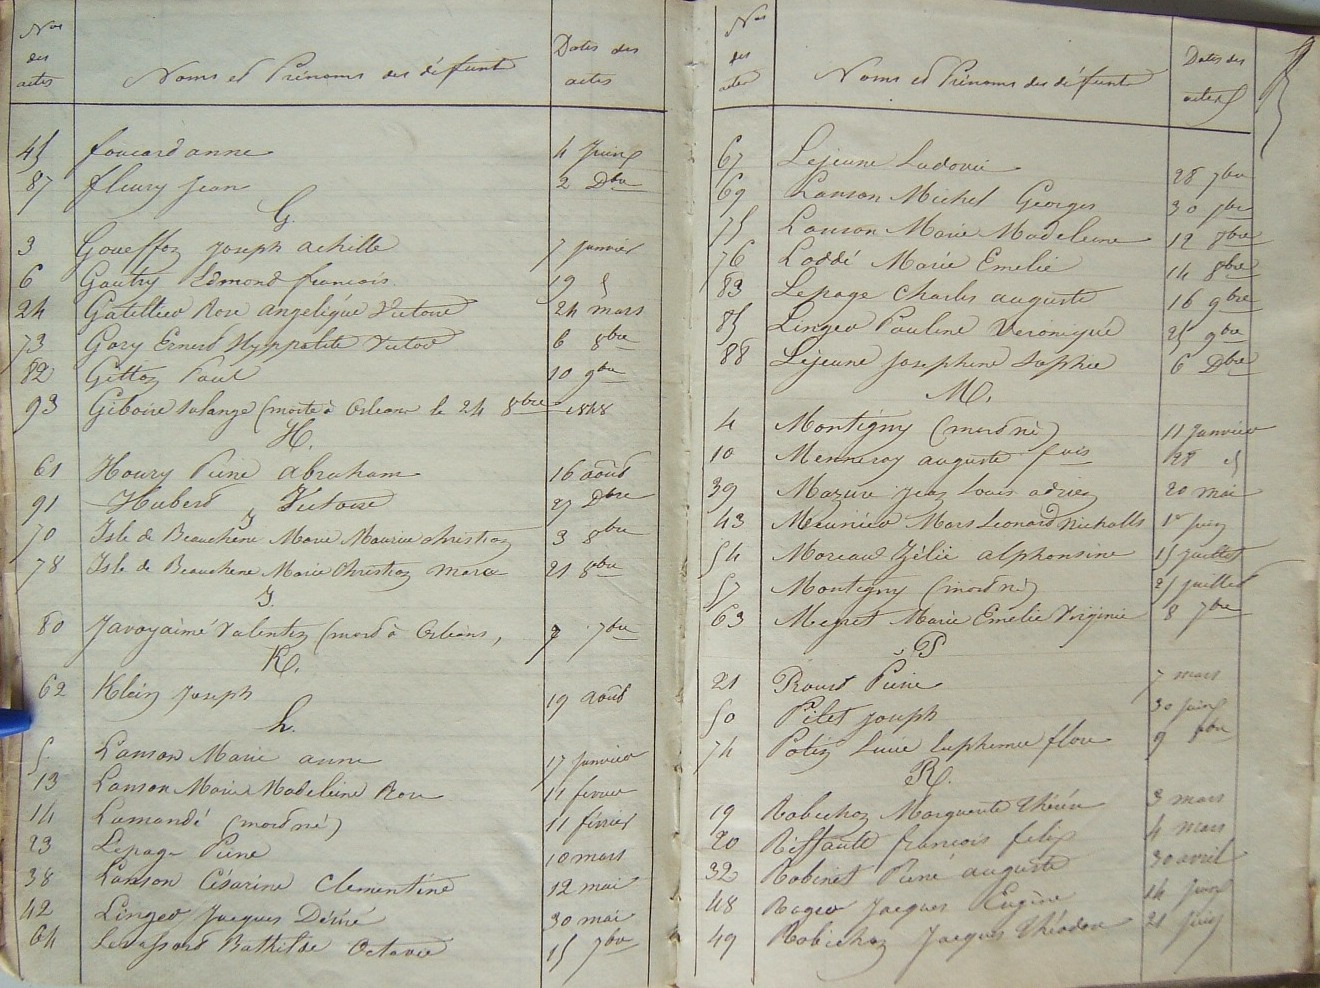 Nos des actes Noms et Prénoms des défunts Dates des actes
45 foucard anne 4 Juin
87 fleury Jean 2 Dbre
G.
3 Goueffon Joseph achille 7 janvier
6 Gautry Edmond francois 19 d
24 Gatellier Rose angelique Victoire 24 mars
73 Gary Ernest Hyppolite Victor 6 8bre
82 Gitton Paul 10 9bre
93 Giboire Solange (morte à Orleans le 24 8bre 1848
H.
61 Houry Pierre abraham 16 août
91 Hubert Victoire 27 Dbre
J
70 Isle de Beauchene Marie Maurice christian 3 8bre
78 Isle de Beauchene Marie Christian Marie 21 8bre
J.
80 Javoy aimé Valentin (mort à Orléans, 7 7bre
K.
62 Klein Joseph 19 août
L.
5 Lanson Marie anne 17 janvier
13 Lanson Marie Madeleine Rose 11 fevrier
14 Lamandé (mort né) 11 février
23 Lepage Pierre 10 mars
38 Lanson Césarine Clementine 12 mai
42 Linger Jacques Désiré 30 mai
64 Levassort Bathilde Octavie 15 7bre
Nos des actes Noms et Prénoms des défunts Dates des actes
67 Lejeune Ludovic 28 7bre
69 Lanson Michel Georges 30 7bre
75 Lanson Marie Madeleine 12 8bre
76 Loddé Marie Emelie 14 8bre
83 Lepage Charles auguste 16 9bre
85 Linger Pauline Veronique 25 9bre
88 Lejeune Josephine Sophie 6 Dbre
M.
4 Montigny (mort né) 11 Janvier
10 Menneray auguste 28 d
39 Mazure Jean Louis adrien 20 mai
43 Meunier Mars Leonard Nicholls 1er Juin
54 Moreau Zélie alphonsine 15 juillet
57 Montigny (mort né) 25 juillet
63 Megret Marie Emelie Virginie 8 7bre
P
21 Proust Pierre 7 mars
50 Pilet Joseph 30 Juin
74 Potin Lucie Euphemie flore 9 8bre
R.
19 Robichon Marguerite Thérèse 3 mars
20 Riffault francois felix 4 mars
32 Robinet Pierre auguste 30 avril
48 Roger Jacques Eugène 14 Juin
49 Robichon Jacques Théodore 21 Juin